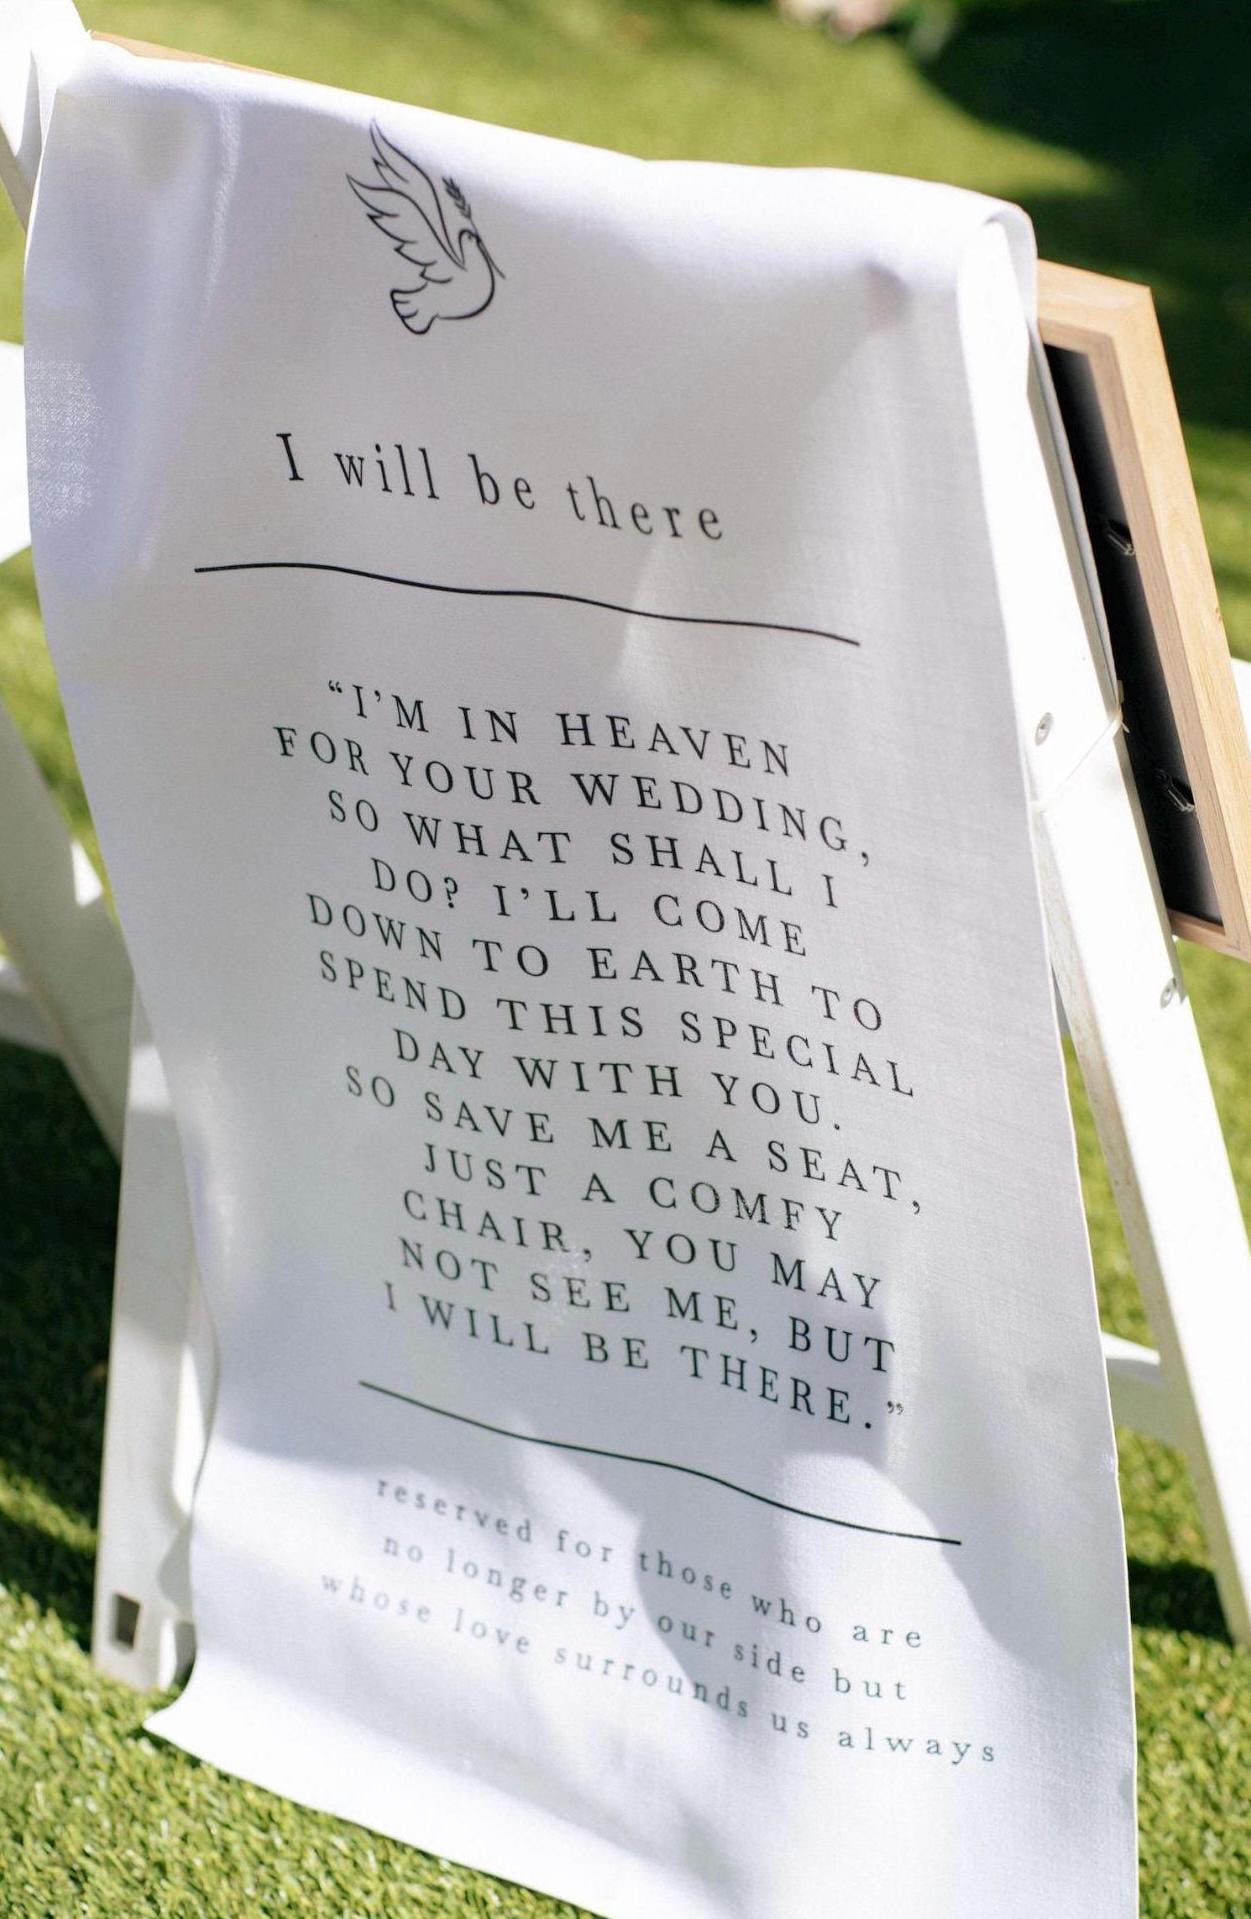 I will be there
“I’M IN HEAVEN
FOR YOUR WEDDING,
SO WHAT SHALL I
DO? I’LL COME
DOWN TO EARTH TO
SPEND THIS SPECIAL
DAY WITH YOU.
SO SAVE ME A SEAT,
JUST A COMFY
CHAIR, YOU MAY
NOT SEE ME, BUT
I WILL BE THERE.”
reserved for those who are
no longer by our side but
whose love surrounds us always